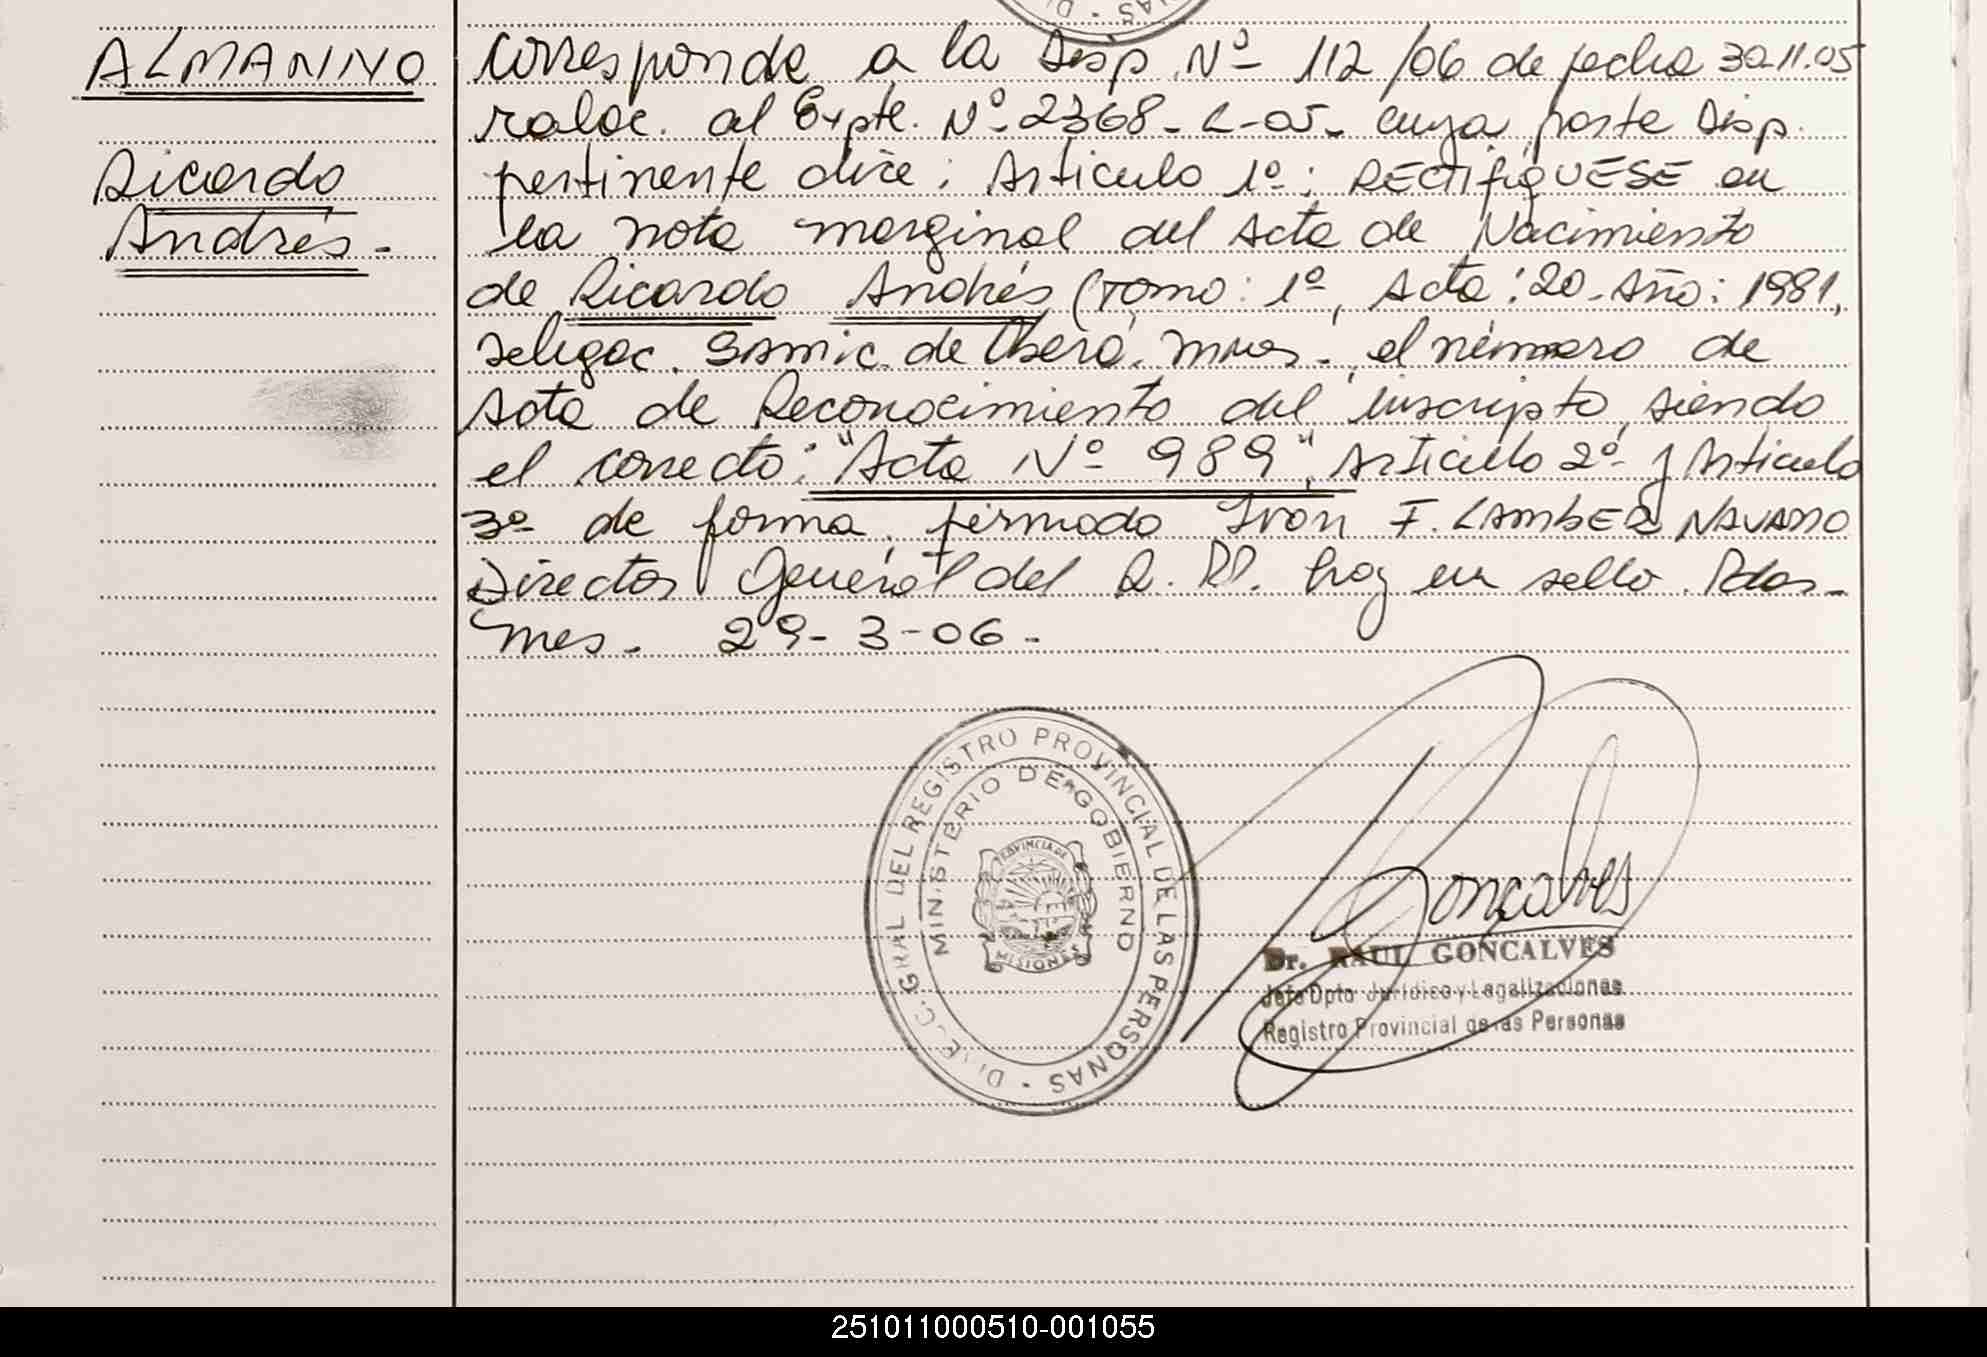 ALMANINO
Ricardo
Andrés.-
Corresponde a la Disp. Nº 112/06 de fecha 30.11.05
raloc. al Expte. Nº 2368-L-05- cuya parte Disp.
pertinente dice: Articulo 1º: RECTIFIQUESE en
la nota marginal del Acta de Nacimiento
de Ricardo Andrés (Tomo: 1º, Acta: 20-Año: 1981,
delegac. SAMIC. de Oberá. Mnes., el número de
Acta de Reconocimiento del inscripto, siendo
el correcto: "Acta Nº 989", Articulo 2º y Articulo
3º de forma, firmado Ivon F. LAMBER NAVARRO
Director General del R.P. hay un sello. Pdas.-
Mes. 29-3-06-
DIRECC. GRAL DEL REGISTRO PROVINCIAL DE LAS PERSONAS
MINISTERIO DE GOBIERNO
PROVINCIA DE
MISIONES
Goncalves
Dr. RAUL GONCALVES
Jefe Dpto Jurídico y Legalizaciones
Registro Provincial de las Personas
251011000510-001055